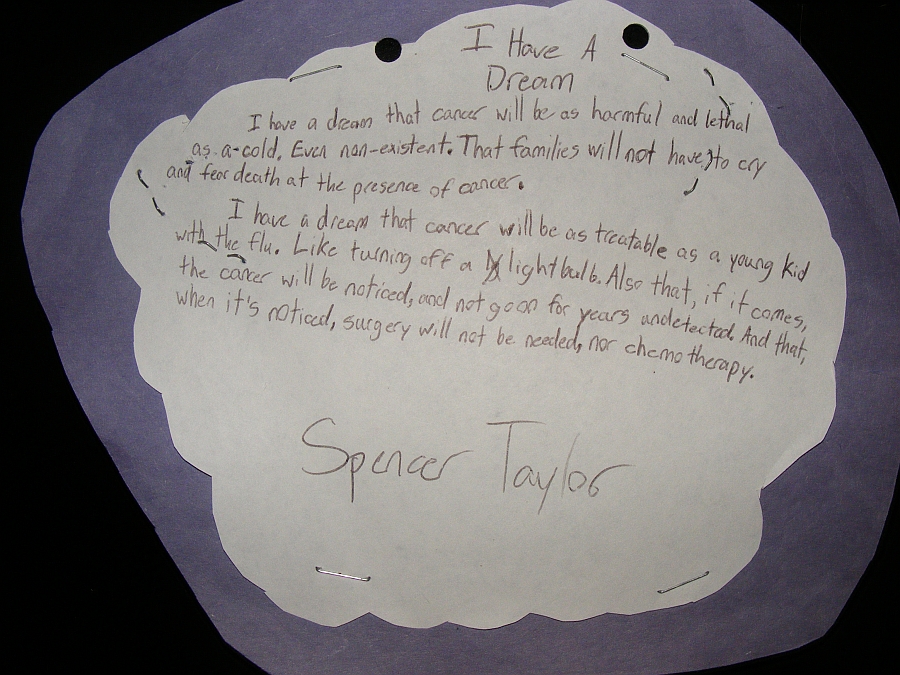 I Have A
Dream
I have a dream that cancer will be as harmful and lethal
as a cold. Even non-existent. That families will not have to cry
and fear death at the presence of cancer.
I have a dream that cancer will be as treatable as a young kid
with the flu. Like turning off a lightbulb. Also that, if it comes,
the cancer will be noticed, and not go on for years undetected. And that,
when it's noticed, surgery will not be needed, nor chemotherapy.
Spencer Taylor